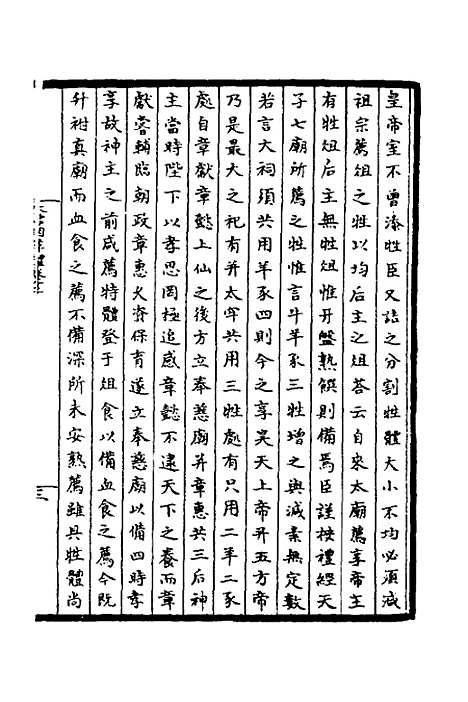 皇帝室不曾添牲臣又詰之分割牲體大小不均必須減
祖宗薦俎之牲以均后主之俎荅云自來太廟薦享帝主
有牲俎后主無牲俎惟牙盤熟饌則備焉臣謹按禮經天
子七廟所薦之牲惟言牛羊豕三牲增之與減素無定數
若言大祠須共用羊豕四則今之享昊天上帝并五方帝
乃是最大之祀有并太牢共用三牲處有只用二羊二豕
處自章獻章懿上仙之後方立奉慈廟并章惠共三后神
主當時陛下以孝思罔極追感章懿不逮天下之養而章
獻睿輔臨朝政章惠久資保育遂立奉慈廟以備四時孝
享故神主之前咸薦特體登于俎食以備血食之薦今既
升祔真廟而血食之薦不備深所未安熟薦雖具牲體尚
三